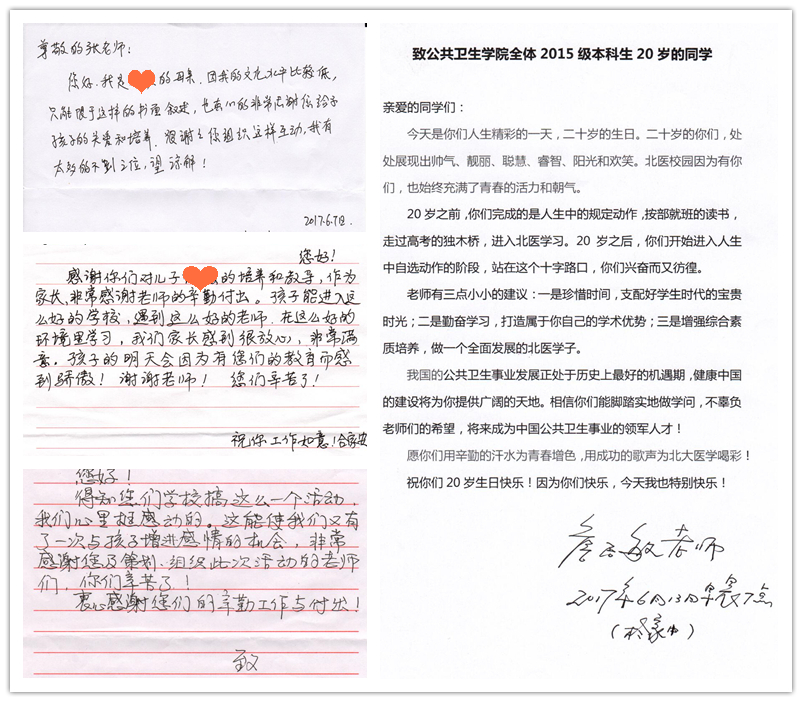 尊敬的张老师：
您好，我是 的母亲，因我的文化水平比较低，
只能限于这样的书面叙述，也衷心的非常感谢您给予
孩子的关爱和培养。很谢谢您组织这样互动，我有
太多的不到之位，望谅解！
2017.6.7日
您好！
感谢你们对儿子 的培养和教导，作为
家长，非常感谢老师的辛勤付出。孩子能进入这
么好的学校，遇到这么好的老师，在这么好的
环境里学习，我们家长感到很放心，非常满
意。孩子的明天会因为有您们的教育而感
到骄傲！谢谢老师！ 您们辛苦了！
祝你工作如意！合家安
您好！
得知您们学校搞这么一个活动，
我们心里挺感动的。这能使我们又有
了一次与孩子增进感情的机会，非常
感谢您及策划、组织此次活动的老师
们，你们辛苦了！
衷心感谢您们的辛勤工作与付出！
致
致公共卫生学院全体 2015 级本科生 20 岁的同学
亲爱的同学们：
今天是你们人生精彩的一天，二十岁的生日。二十岁的你们，处
处展现出帅气、靓丽、聪慧、睿智、阳光和欢笑。北医校园因为有你
们，也始终充满了青春的活力和朝气。
20 岁之前，你们完成的是人生中的规定动作，按部就班的读书，
走过高考的独木桥，进入北医学习。20 岁之后，你们开始进入人生
中自选动作的阶段，站在这个十字路口，你们兴奋而又彷徨。
老师有三点小小的建议：一是珍惜时间，支配好学生时代的宝贵
时光；二是勤奋学习，打造属于你自己的学术优势；三是增强综合素
质培养，做一个全面发展的北医学子。
我国的公共卫生事业发展正处于历史上最好的机遇期，健康中国
的建设将为你提供广阔的天地。相信你们能脚踏实地做学问，不辜负
老师们的希望，将来成为中国公共卫生事业的领军人才！
愿你们用辛勤的汗水为青春增色，用成功的歌声为北大医学喝彩！
祝你们 20 岁生日快乐！因为你们快乐，今天我也特别快乐！
老师
2017年6月13日早晨7点